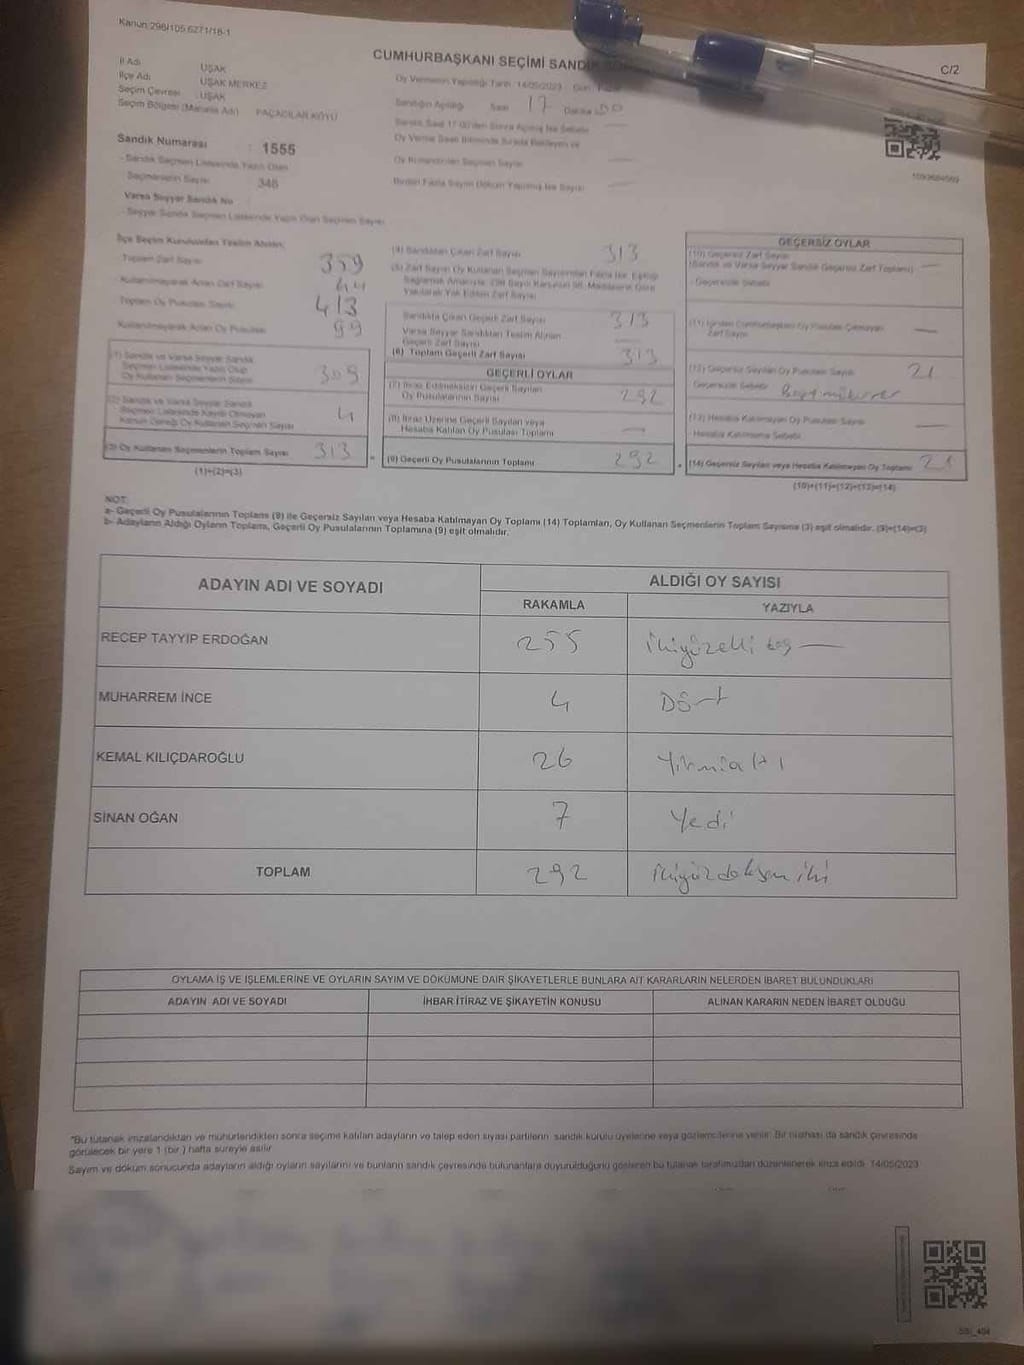 Kanun:298/105,6271/18-1
CUMHURBAŞKANI SEÇİMİ SANDIK
C/2
İl Adı UŞAK
İlçe Adı UŞAK MERKEZ
Seçim Çevresi UŞAK
Seçim Bölgesi (Mahalle Adı) PAÇACILAR KÖYÜ
Oy Vermenin Yapıldığı Tarih 14/05/2023 Gün
Sandığın Açıldığı Saat 17 Dakika 00
Sandık Saat 17:00'den Sonra Açılmış İse Sebebi
Oy Verme Saati Bitiminde Sırada Bekleyen ve
Oy Kullandırılan Seçmen Sayısı
Birden Fazla Sayım Döküm Yapılmış İse Sayısı
Sandık Numarası : 1555
- Sandık Seçmen Listesinde Yazılı Olan
Seçmenlerin Sayısı 346
Varsa Seyyar Sandık No
- Seyyar Sandık Seçmen Listesinde Yazılı Olan Seçmen Sayısı
İlçe Seçim Kurulundan Teslim Alınan;
Toplam Zarf Sayısı 359
Kullanılmayarak Artan Zarf Sayısı 44
Toplam Oy Pusulası Sayısı 413
Kullanılmayarak Artan Oy Pusulası 99
(1) Sandık ve Varsa Seyyar Sandık
Seçmen Listesinde Yazılı Olup
Oy Kullanan Seçmenlerin Sayısı 309
(2) Sandık ve Varsa Seyyar Sandık
Seçmen Listesinde Kayıtlı Olmayan
Kanun Gereği Oy Kullanan Seçmen Sayısı 4
(3) Oy Kullanan Seçmenlerin Toplam Sayısı 313
(1)+(2)=(3)
(4) Sandıktan Çıkan Zarf Sayısı 313
(5) Zarf Sayısı Oy Kullanan Seçmen Sayısından Fazla İse, Eşitliği
Sağlamak Amacıyla, 298 Sayılı Kanunun 98. Maddesine Göre
Yakılarak Yok Edilen Zarf Sayısı
Sandıkta Çıkan Geçerli Zarf Sayısı 313
Varsa Seyyar Sandıktan Teslim Alınan
Geçerli Zarf Sayısı
(6) Toplam Geçerli Zarf Sayısı 313
GEÇERLİ OYLAR
(7) İtiraz Edilmeksizin Geçerli Sayılan
Oy Pusulalarının Sayısı 292
(8) İtiraz Üzerine Geçerli Sayılan veya
Hesaba Katılan Oy Pusulası Toplamı
(9) Geçerli Oy Pusulalarının Toplamı 292
GEÇERSİZ OYLAR
(10) Geçersiz Zarf Sayısı
(Sandık ve Varsa Seyyar Sandık Geçersiz Zarf Toplamı)
- Geçersizlik Sebebi
(11) İçinden Cumhurbaşkanı Oy Pusulası Çıkmayan
Zarf Sayısı
(12) Geçersiz Sayılan Oy Pusulası Sayısı 21
Geçersizlik Sebebi
(13) Hesaba Katılmayan Oy Pusulası Sayısı
Hesaba Katılmama Sebebi
(14) Geçersiz Sayılan veya Hesaba Katılmayan Oy Toplamı 21
(10)+(11)+(12)+(13)=(14)
NOT:
a- Geçerli Oy Pusulalarının Toplamı (9) ile Geçersiz Sayılan veya Hesaba Katılmayan Oy Toplamı (14) Toplamları, Oy Kullanan Seçmenlerin Toplam Sayısına (3) eşit olmalıdır. (9)+(14)=(3)
b- Adayların Aldığı Oyların Toplamı, Geçerli Oy Pusulalarının Toplamına (9) eşit olmalıdır.
ADAYIN ADI VE SOYADI
ALDIĞI OY SAYISI
RAKAMLA YAZIYLA
RECEP TAYYİP ERDOĞAN 255 ikiyüzelli beş
MUHARREM İNCE 4 Dört
KEMAL KILIÇDAROĞLU 26 Yirmialtı
SİNAN OĞAN 7 Yedi
TOPLAM 292 ikiyüzdoksan iki
OYLAMA İŞ VE İŞLEMLERİNE VE OYLARIN SAYIM VE DÖKÜMÜNE DAİR ŞİKAYETLERLE BUNLARA AİT KARARLARIN NELERDEN İBARET BULUNDUKLARI
ADAYIN ADI VE SOYADI İHBAR İTİRAZ VE ŞİKAYETİN KONUSU ALINAN KARARIN NEDEN İBARET OLDUĞU
*Bu tutanak imzalandıktan ve mühürlendikten sonra seçime katılan adayların ve talep eden siyasi partilerin sandık kurulu üyelerine veya gözlemcilerine verilir. Bir nüshası da sandık çevresinde
görülecek bir yere 1 (bir ) hafta süreyle asılır.
Sayım ve döküm sonucunda adayların aldığı oyların sayılarını ve bunların sandık çevresinde bulunanlara duyurulduğunu gösteren bu tutanak tarafımızdan düzenlenerek imza edildi. 14/05/2023